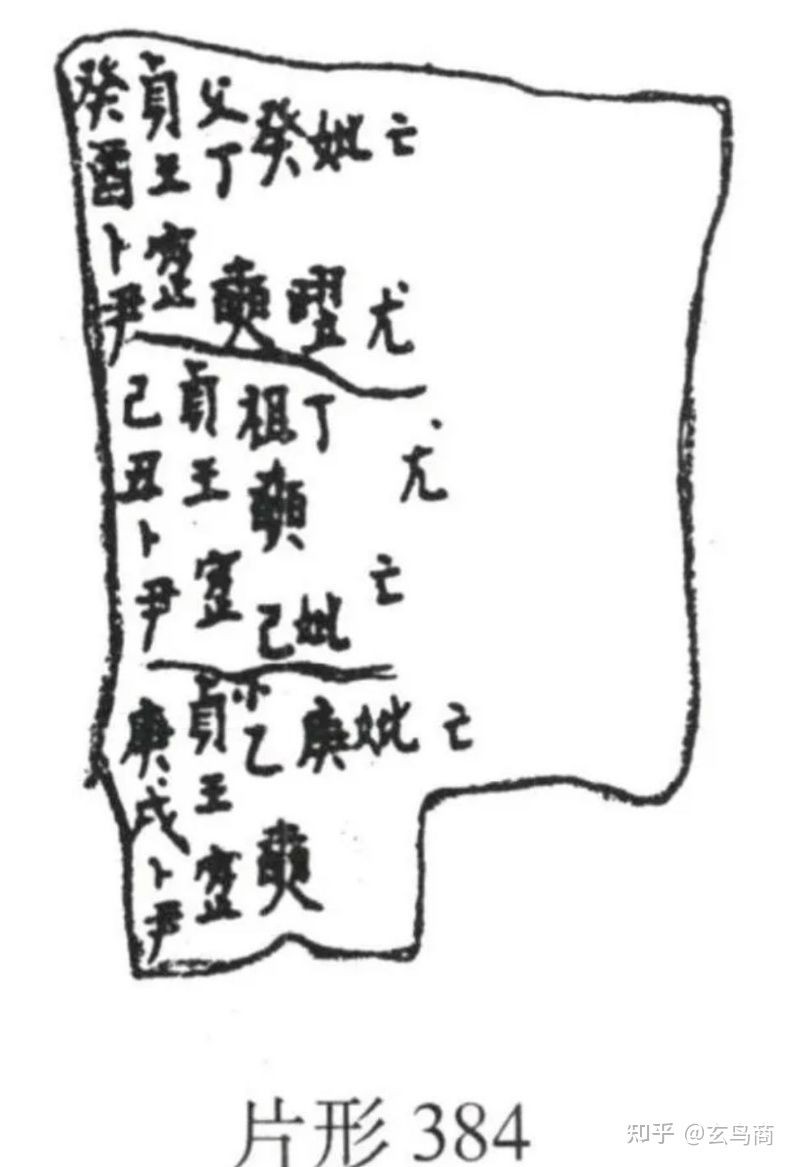 癸酉卜尹
貞王
父丁奭
癸妣
亡尤
己丑卜尹
貞王
祖丁奭
己妣
亡尤
庚戌卜尹
貞王
小乙奭
庚妣
亡
片形 384
知乎 @玄鸟商